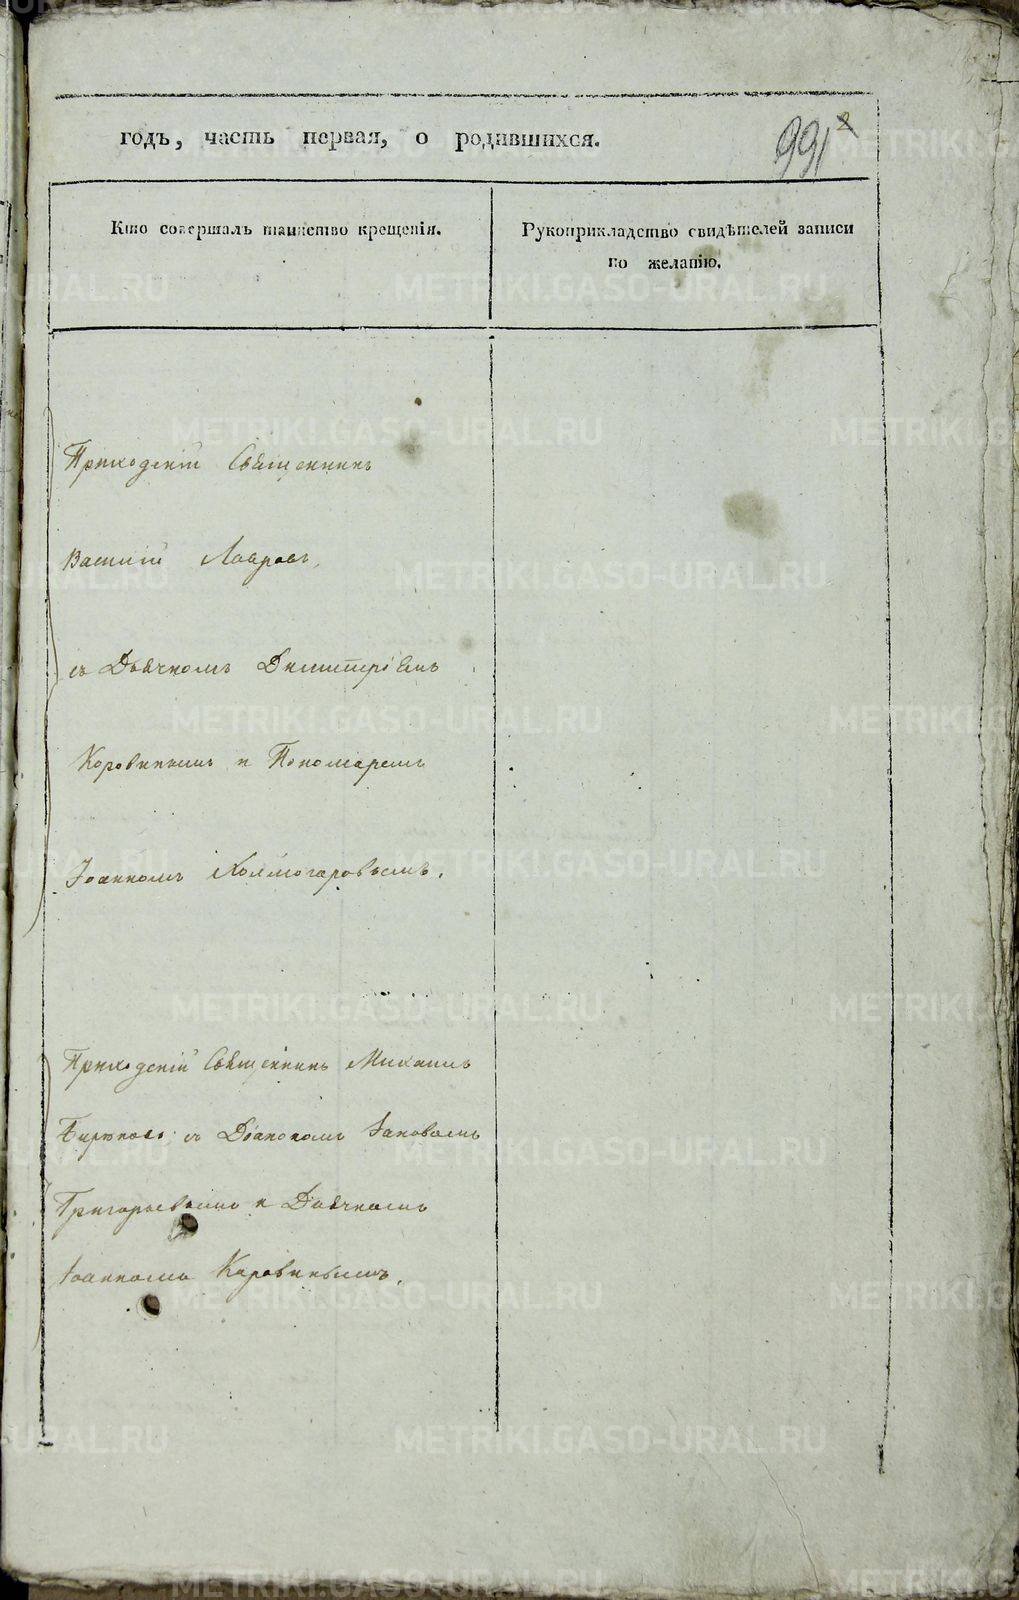 годъ, часть первая, о родившихся.
991
Кто совершалъ таинство крещенія.
Рукоприкладство свидѣтелей записи
по желанію.
Приходскій Священникъ
Василій Лавровъ,
съ Дьячкомъ Димитріемъ
Коровинымъ и Пономаремъ
Іоанномъ Холмогоровымъ.
Приходскій Священникъ Михаилъ
Бирюковъ съ Діакономъ Іаковомъ
Григорьевымъ и Дьячкомъ
Іоанномъ Коровинымъ.
METRIKI.GASO-URAL.RU